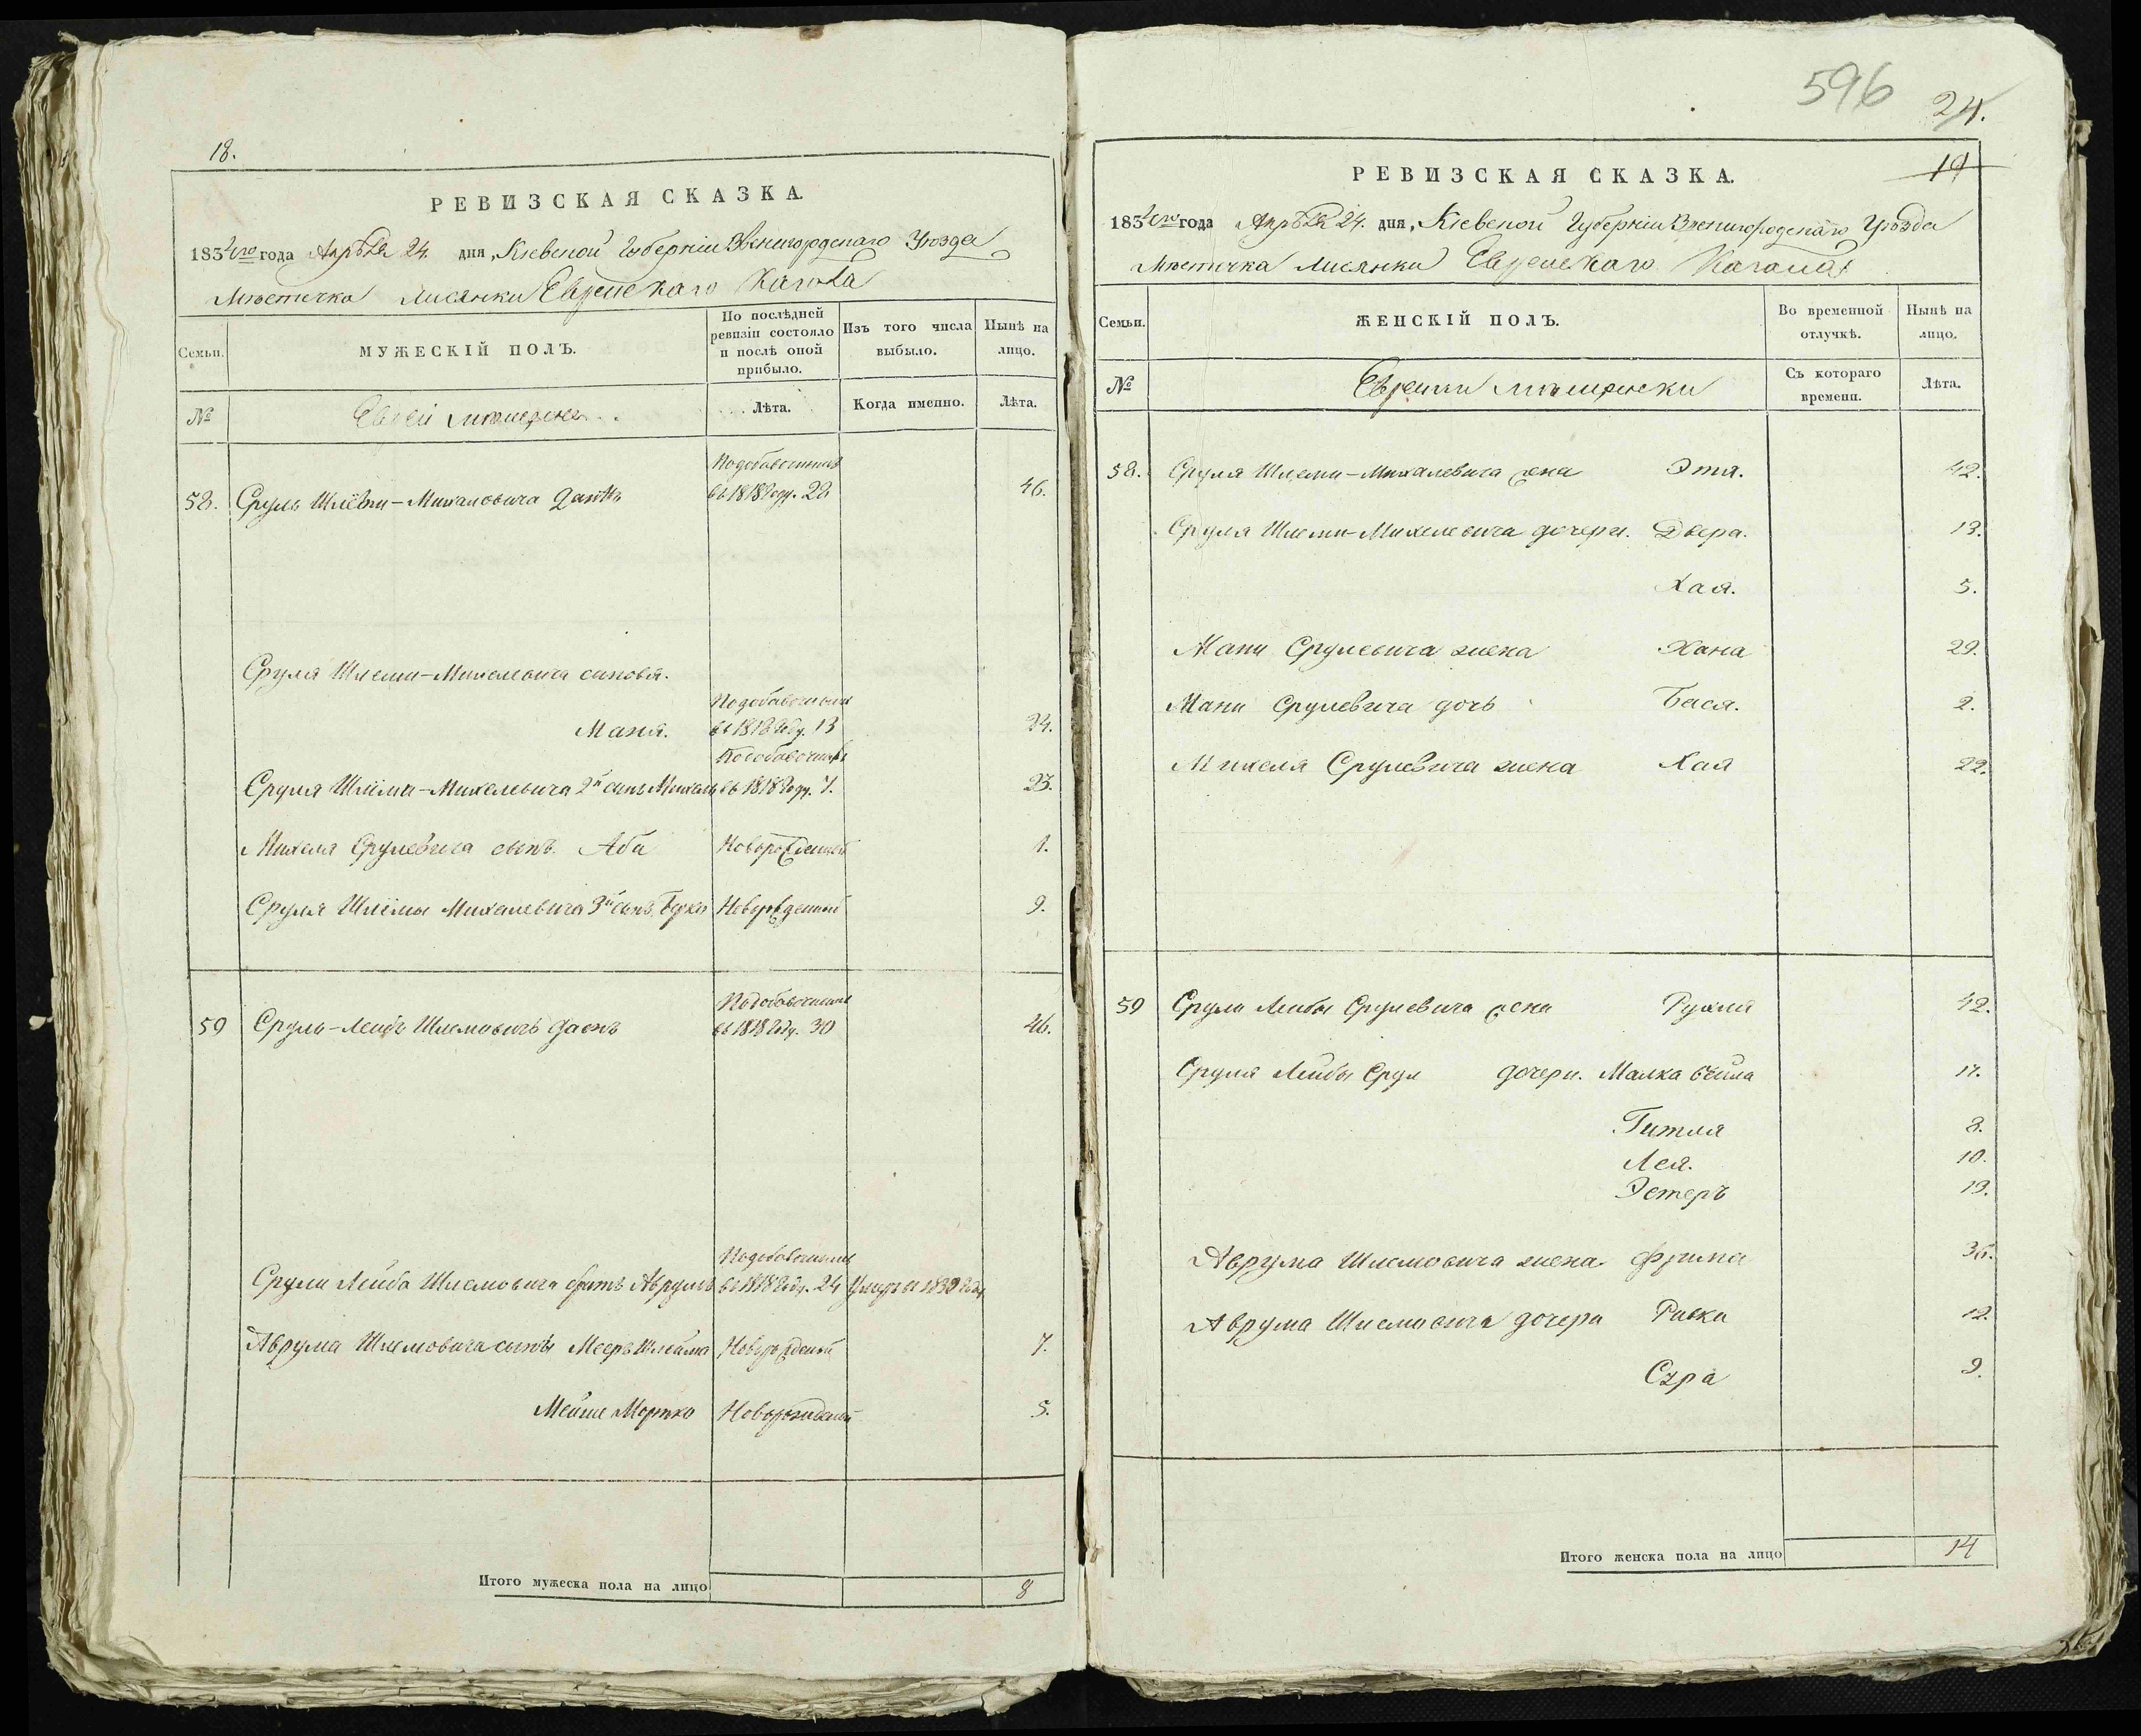 18.
РЕВИЗСКАЯ СКАЗКА.
183 года Апрѣля 24. дня, Кіевской Губерніи Звенигородскаго Уѣзда
Мѣстечка Лисянки Еврейскаго Кагала
Семьи.
МУЖЕСКІЙ ПОЛЪ.
По послѣдней ревизіи состояло и послѣ оной прибыло.
Изъ того числа выбыло.
Нынѣ на лицо.
№
Евреи мѣщане
Лѣта.
Когда именно.
Лѣта.
58. Сруль Шлёми-Михаловича
въ 1818 году. 28
46.
Сруля Шлеми-Михелевича сыновья.
Маня.
въ 1818 году. 13
24.
Сруля Шлёми-Михелевича 2й сынъ Михель въ 1818 году. 7.
23.
Михеля Срулевича сынъ. Аба Новорожденный 1.
Сруля Шлёмы Михелевича 3й сынъ Новорожденный 9.
59 Сруль-Лейбъ Шлемовичъ
въ 1818 году. 30
46.
Срули Лейба Шлемовича братъ Аврумъ въ 1818 году. 24 Умеръ в 1830 году
Аврума Шлемовича сыны Мееръ Шлёма Новорожденый 7.
Мейше Мортко Новорожденый 5.
Итого мужеска пола на лицо 8
596
24.
19
РЕВИЗСКАЯ СКАЗКА.
183 года Апрѣля 24. дня, Кіевской Губерніи Звенигородскаго Уѣзда
Мѣстечка Лисянки Еврейскаго Кагала
Семьи.
ЖЕНСКІЙ ПОЛЪ.
Во временной отлучкѣ.
Нынѣ на лицо.
№
Еврейки мѣщанки
Съ котораго времени.
Лѣта.
58. Сруля Шлеми-Михалевича жена Этя. 42.
Сруля Шлеми-Михелевича дочери. Двера. 13.
Хая. 5.
Мани Срулевича жена Хана 29.
Мани Срулевича дочь Бася. 2.
Михеля Срулевича жена Хая 22.
59 Срули Лейбы Срулевича жена Рухля 42.
Сруля Лейбы Срул дочери. Малка 17.
Гитля 8.
Лея. 10.
Эстеръ 13.
Аврума Шлемовича жена Фрима 36.
Аврума Шлемовича дочери Ривка 12.
Сура 9.
Итого женска пола на лицо 14